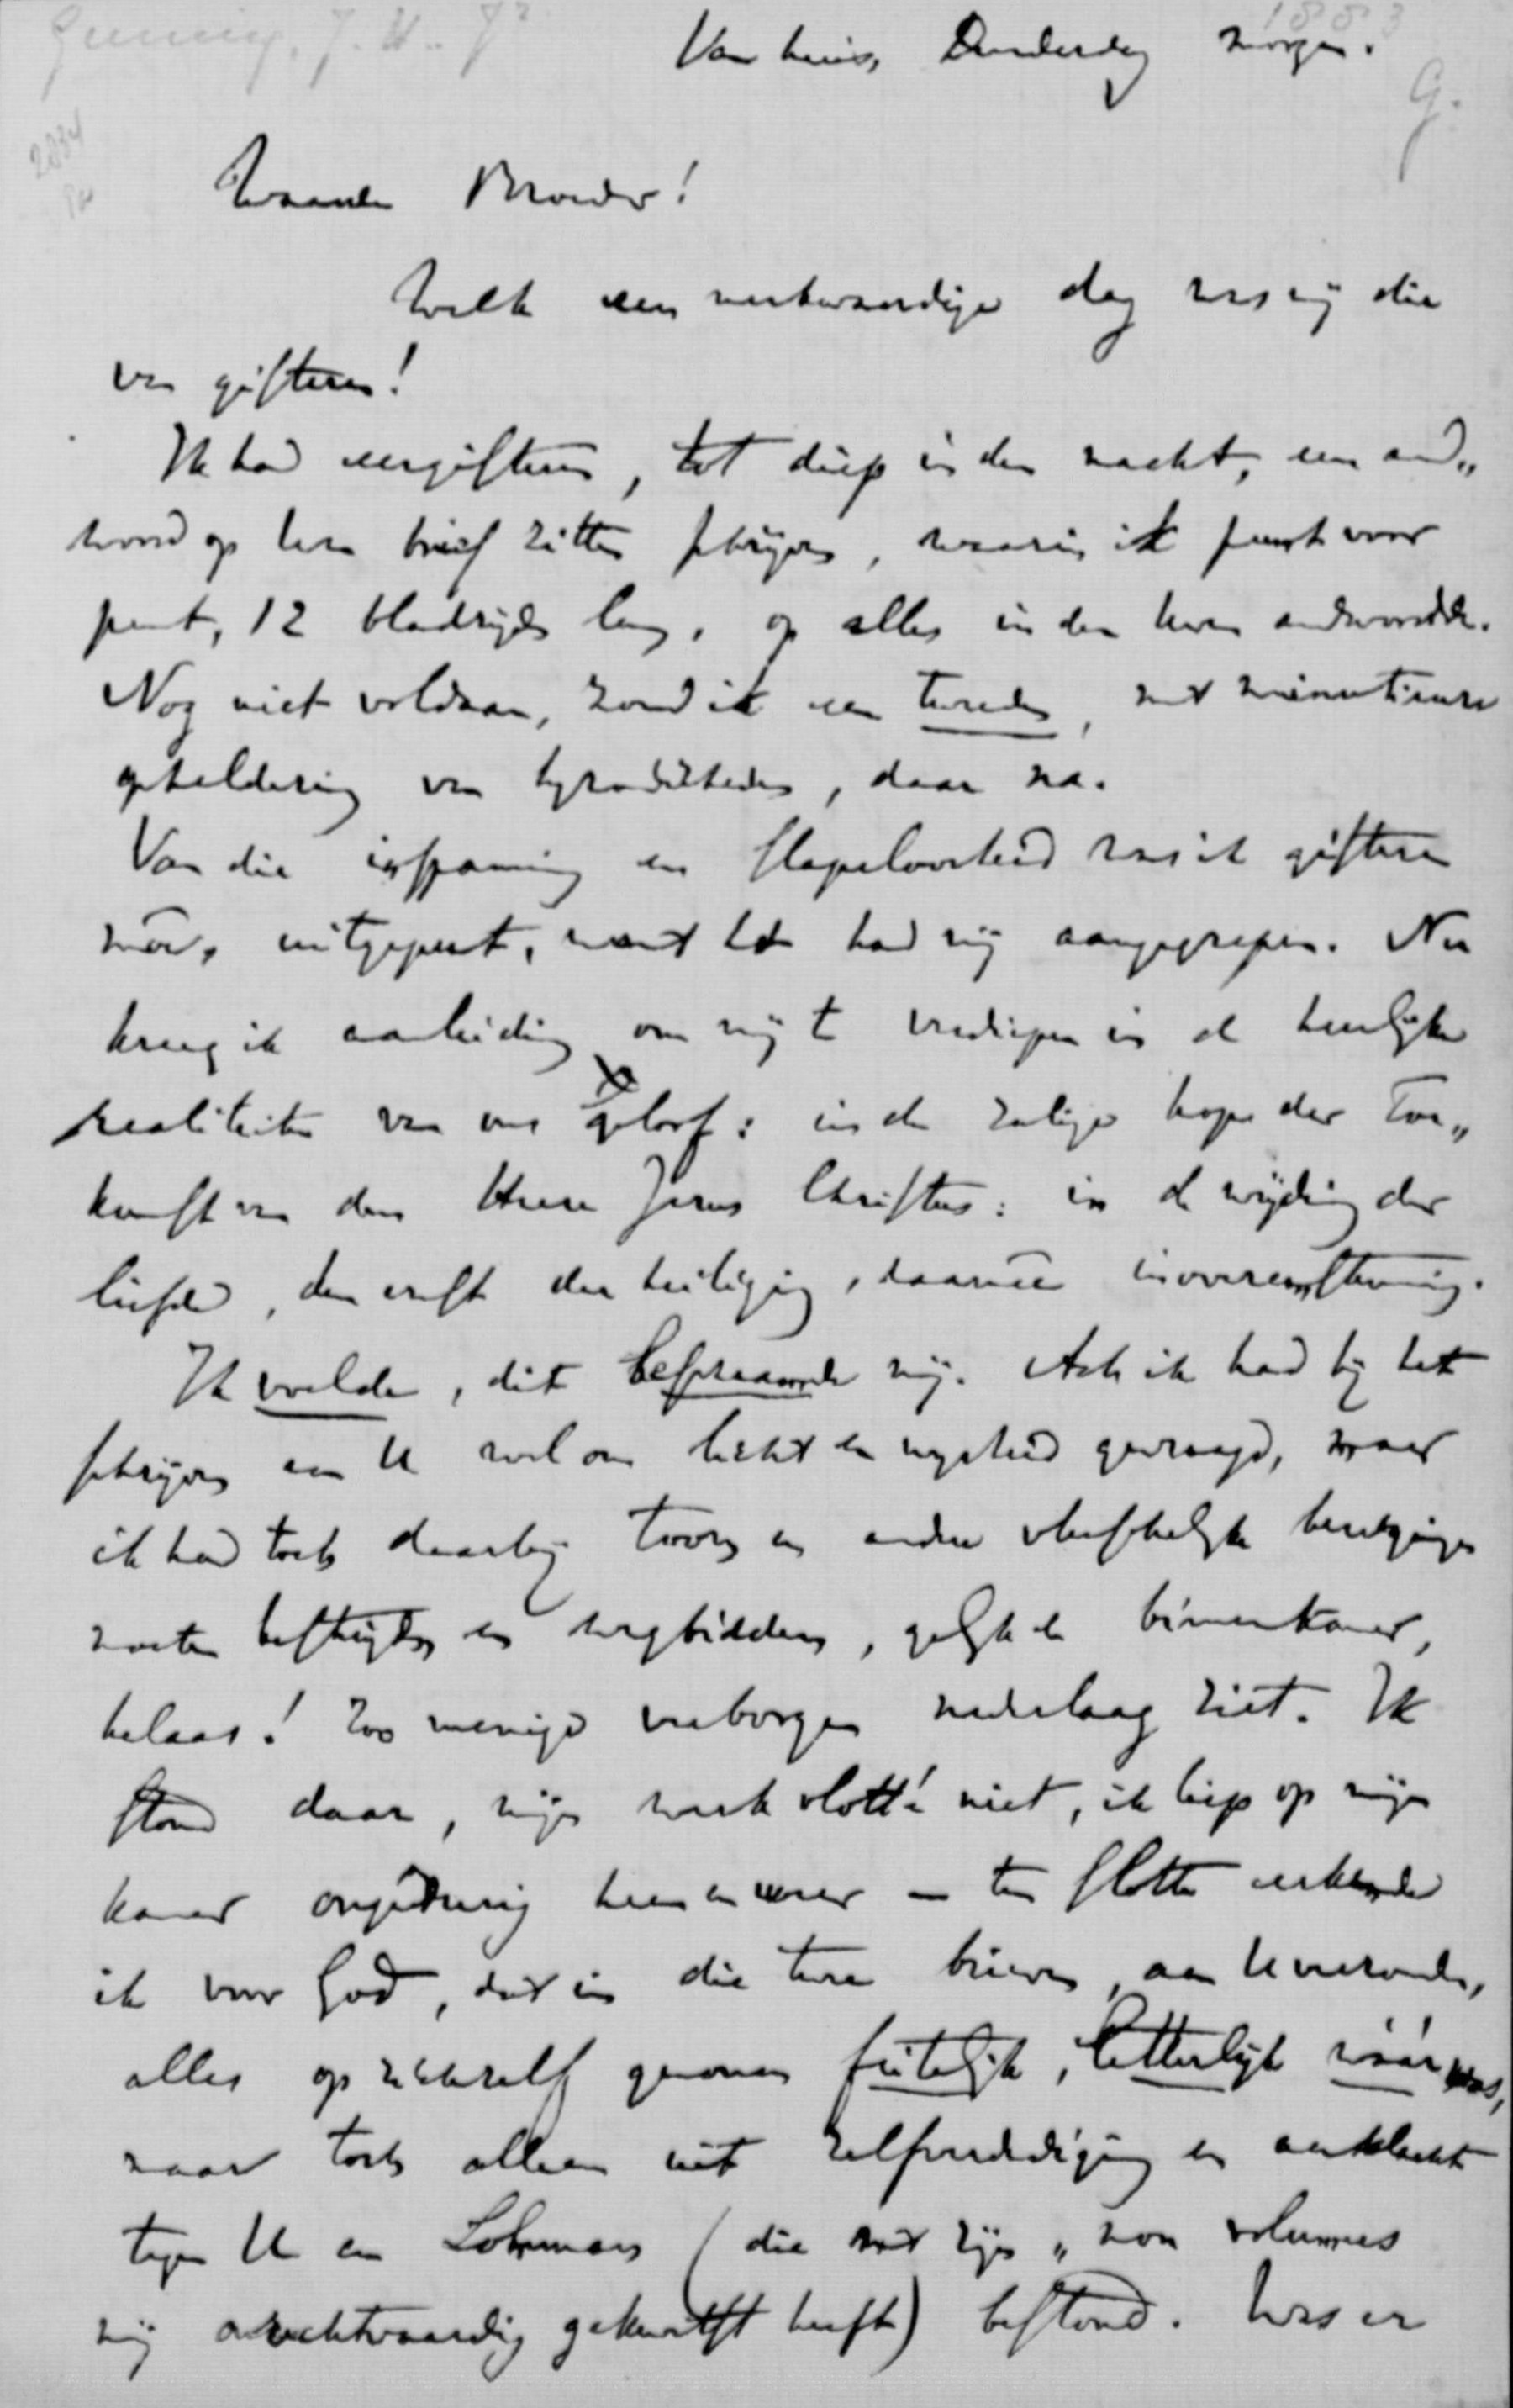 Gunning, J. H. Jr 1883
Van huis, Donderdag morgen.
G.
2834
Waarde Broeder!
Welk een merkwaardige dag was mij die
van gisteren!
Ik had eergisteren, tot diep in den nacht, een ant„
woord op Uw brief zitten schrijven, waarin ik punt voor
punt, 12 bladzijden lang, op alles in den brede antwoordde.
Nog niet voldaan, zond ik een tweeden, met minutieuse
opheldering van bijzonderheden, daar na.
Van die inspanning en slapeloosheid was ik gisteren
moe, uitgeput, want het had mij aangegrepen. Nu
kreeg ik aanleiding om mij te verdiepen in de heerlijke
realiteiten van ons geloof: in de zalige hope der Toe„
komst van den Heere Jezus Christus: in de wijding der
liefde, den ernst der heiliging, daarmee in overeenstemming.
Ik voelde, dit beschaamde mij. Ach ik had bij het
schrijven aan U wel om licht en wijsheid gevraagd, maar
ik had toch daarbij toorn en andere vleeschelijke bewegingen
moeten bestrijden en wegbidden, gelijk de binnenkamer,
helaas! zoo menige verborgen nederlaag ziet. Ik
stond daar, mijn werk vlotte niet, ik liep op mijn
kamer ongedurig heen en weer — ten slotte erkende
ik voor God, dat in die twee brieven, aan U verzonden,
alles op zichzelf genomen feitelijk, letterlijk wáár was,
maar toch alleen uit zelfverdediging en aanklacht
tegen U en Lohman (die met zijn „non volumus
mij onrechtvaardig gekwetst heeft) bestond. Was er